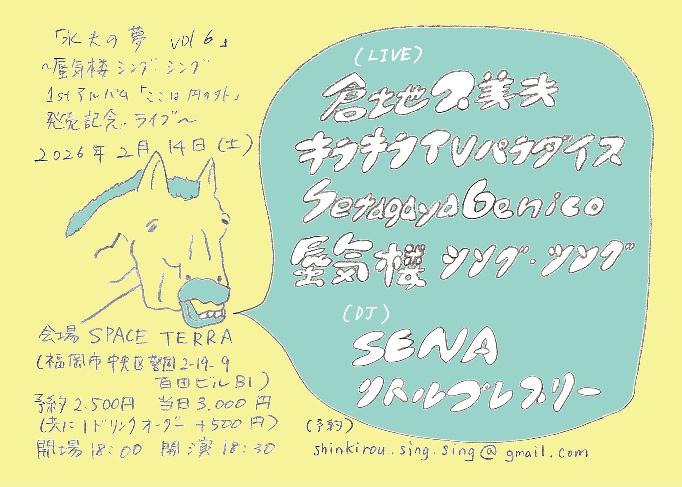 「氷夫の夢 vol 6」
〜蜃気楼シング・シング
1stアルバム「ここは円の外」
発売記念・ライブ〜
2026年2月14日(土)
会場 SPACE TERRA
(福岡市中央区警固2-19-9
百田ビルB1)
予約 2.500円 当日3.000円
(共に1ドリンクオーダー +500円)
開場18:00 開演18:30
(LIVE)
倉地久美夫
キラキラTVパラダイス
Setagaya Genico
蜃気楼 シング・シング
(DJ)
SENA
リトルプレスリー
(予約)
shinkirou.sing.sing@gmail.com